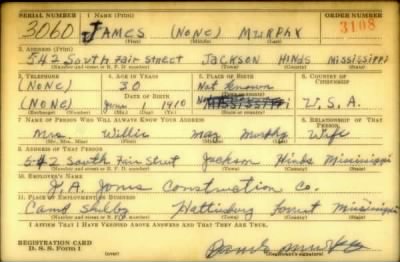 SERIAL NUMBER 1. NAME (Print) ORDER NUMBER
3060 JAMES (NONE) MURPHY 3108
(First) (Middle) (Last)
2. ADDRESS (Print)
542 South Fair Street JACKSON HINDS MISSISSIPPI
(Number and street or R. F. D. number) (Town) (County) (State)
3. TELEPHONE 4. AGE IN YEARS 5. PLACE OF BIRTH 6. COUNTRY OF CITIZENSHIP
(NONE) 30 Not Known
DATE OF BIRTH Not
(NONE) 1 1910 MISSISSIPPI U.S.A.
(Exchange) (Number) (Mo.) (Day) (Yr.) (State or country)
7. NAME OF PERSON WHO WILL ALWAYS KNOW YOUR ADDRESS 8. RELATIONSHIP OF THAT PERSON
Mrs. Willie May Murphy Wife
(Mr., Mrs., Miss) (First) (Middle) (Last)
9. ADDRESS OF THAT PERSON
542 South Fair Street Jackson Hinds Mississippi
(Number and street or R. F. D. number) (Town) (County) (State)
10. EMPLOYER'S NAME
J. A. Jones Construction Co.
11. PLACE OF EMPLOYMENT OR BUSINESS
Camp Shelby Hattisburg Forrest Mississippi
(Number and street or R. F. D. number) (Town) (County) (State)
I AFFIRM THAT I HAVE VERIFIED ABOVE ANSWERS AND THAT THEY ARE TRUE.
REGISTRATION CARD
D. S. S. Form 1 (over) (Registrant's signature)